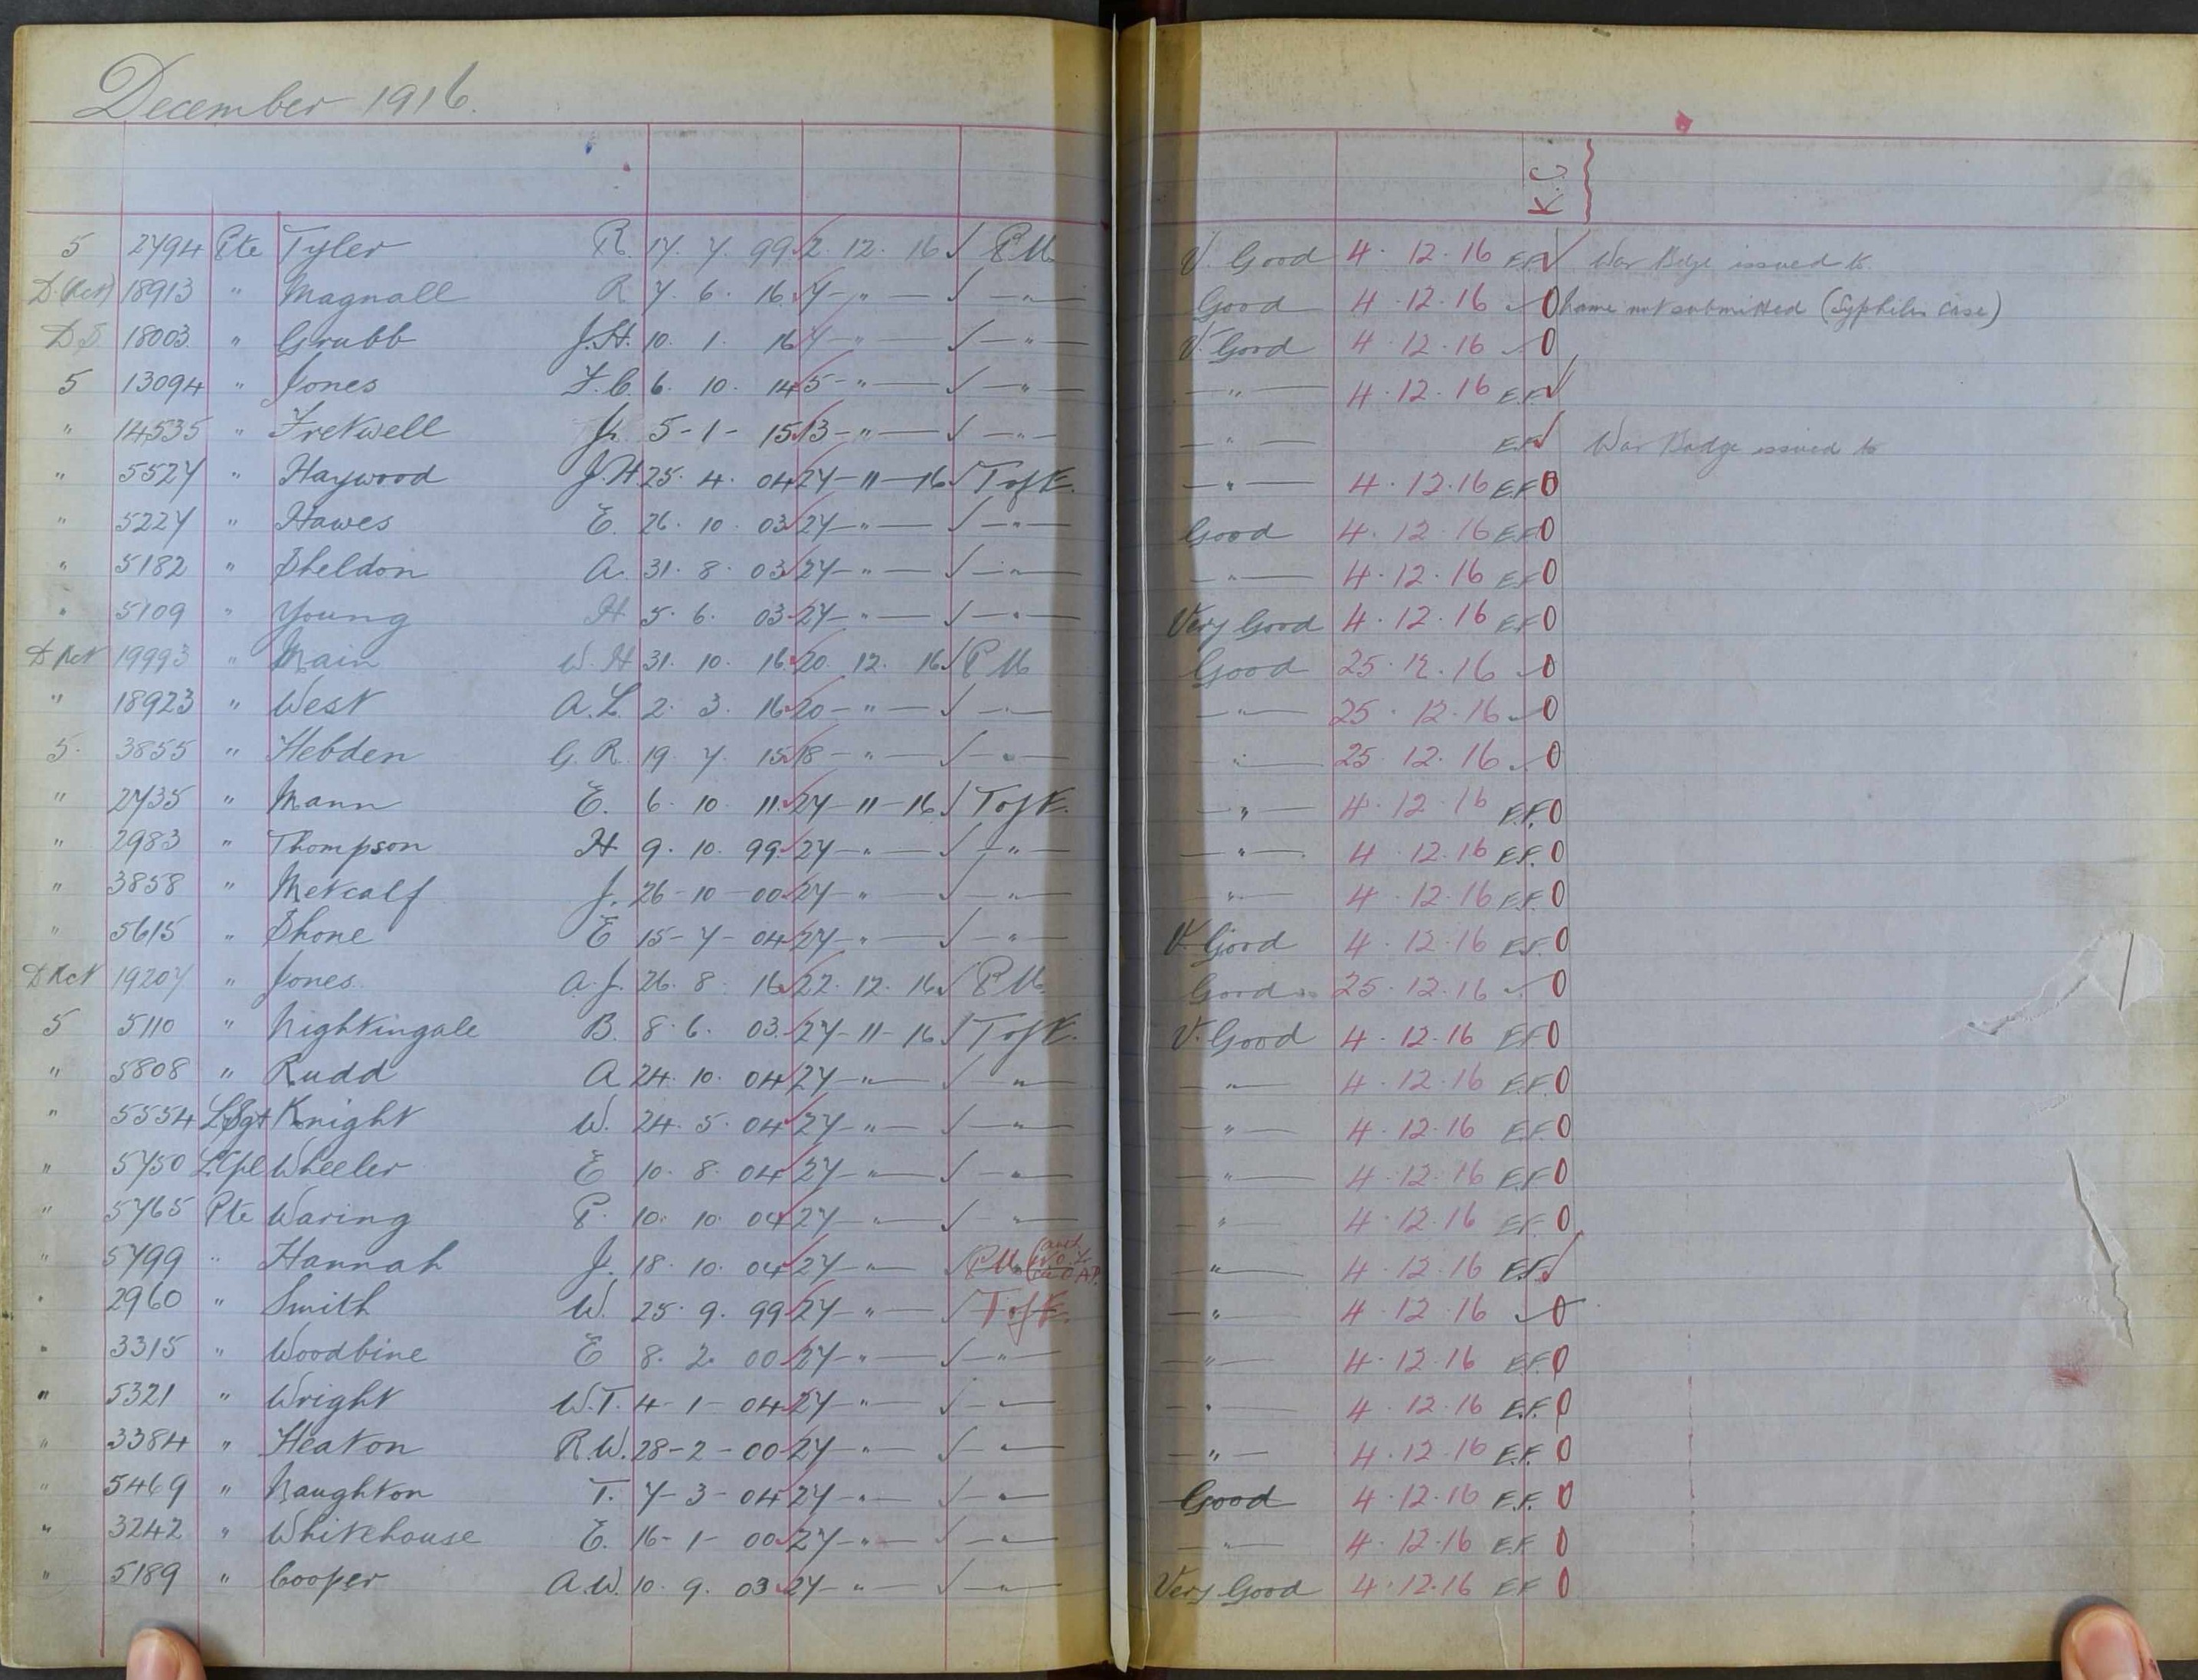 December 1916.
K.C.
5 2794 Pte Tyler R. 17. 7. 99 2. 12. 16 P.U. V. Good 4. 12. 16 E.F. War Bdge issued to
D. (Rct) 18913 " Magnall R 7. 6. 16 7 - " - - " - Good 4. 12. 16 0 name not submitted (Syphilis case)
D.S 18003 " Grubb J.H. 10. 1. 16 4 - " - - " - V. Good 4. 12. 16 0
5 13094 " Jones F.C. 6. 10. 14 5 - " - - " - - " - 4. 12. 16 E.F.
" 14535 " Fretwell J. 5 - 1 - 15 13 - " - - " - - " - E.F. War Badge issued to
" 5527 " Haywood J.H. 25. 4. 04 27 - 11 - 16 T of E. - " - 4. 12. 16 E.F. 0
" 5227 " Hawes E. 26. 10. 03 27 - " - - " - Good 4. 12. 16 E.F. 0
" 5182 " Sheldon A. 31. 8. 03 27 - " - - " - - " - 4. 12. 16 E.F. 0
" 5109 " Young H 5. 6. 03 27 - " - - " - Very Good 4. 12. 16 E.F. 0
D Rct 19993 " Main W.H 31. 10. 16 20. 12. 16 P.U Good 25. 12. 16 0
" 18923 " West A.L. 2. 3. 16 20 - " - - " - - " - 25. 12. 16 0
5. 3855 " Hebden G.R. 19. 7. 15 18 - " - - " - - " - 25. 12. 16 0
" 2735 " Mann E. 6. 10 11. 27 - 11 - 16 T of E. - " - 4. 12. 16 E.F. 0
" 2983 " Thompson H 9. 10. 99. 27 - " - - " - - " - 4. 12. 16 E.F. 0
" 3858 " Metcalf J. 26 - 10 - 00 27 - " - - " - - " - 4. 12. 16 E.F. 0
" 5615 " Shone E 15 - 7 - 04 27 - " - - " - V. Good 4. 12. 16 E.F. 0
D Rct 19207 " Jones A.J. 26. 8. 16 22. 12. 16 P.U. Good 25. 12. 16 0
5 5110 " Nightingale B. 8. 6. 03. 27 - 11 - 16 T of E. V. Good 4. 12. 16 E.F 0
" 5808 " Rudd A 24. 10. 04 27 - " - - " - - " - 4. 12. 16 E.F. 0
" 5554 L/Sgt Knight W. 24. 5. 04 27 - " - - " - - " - 4. 12. 16 E.F. 0
" 5750 L.Cpl Wheeler E 10. 8. 04 27 - " - - " - - " - 4. 12. 16 E.F. 0
" 5765 Pte Waring P. 10. 10. 04 27 - " - - " - - " - 4. 12. 16 E.F. 0
" 5799 " Hannah J. 18. 10. 04 27 - " - P.U. - " - 4. 12. 16 E.F.
" 2960 " Smith W. 25. 9. 99 27 - " - T of E. - " - 4. 12. 16 0
" 3315 " Woodbine E 8. 2. 00 27 - " - - " - - " - 4. 12. 16 E.F. 0
" 5321 " Wright W.T. 4 - 1 - 04 27 - " - - " - - " - 4. 12. 16 E.F. 0
" 3384 " Heaton R.W. 28 - 2 - 00 27 - " - - " - - " - 4. 12. 16 E.F. 0
" 5469 " Naughton T. 7 - 3 - 04 27 - " - - " - Good 4. 12. 16 E.F. 0
" 3242 " Whitehouse E. 16 - 1 - 00 27 - " - - " - - " - 4. 12. 16 E.F. 0
" 5189 " Cooper A.W. 10. 9. 03 27 - " - - " - Very Good 4. 12. 16 E.F 0